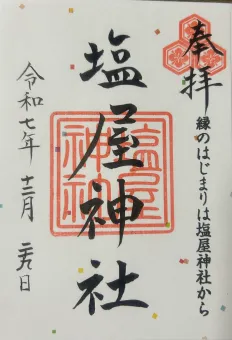 奉拝
縁のはじまりは塩屋神社から
塩屋神社
塩屋
神社
令和七年 十二月 二九日